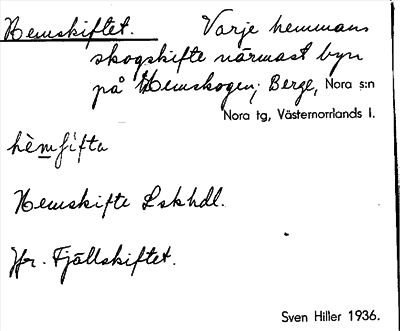 Hemskiftet. Varje hemmans
skogskifte närmast byn
på Hemskogen; Berge, Nora s:n
Nora tg, Västernorrlands l.
hèmʃifta
Hemskifte Lskhdl.
Jfr. Fjällskiftet.
Sven Hiller 1936.